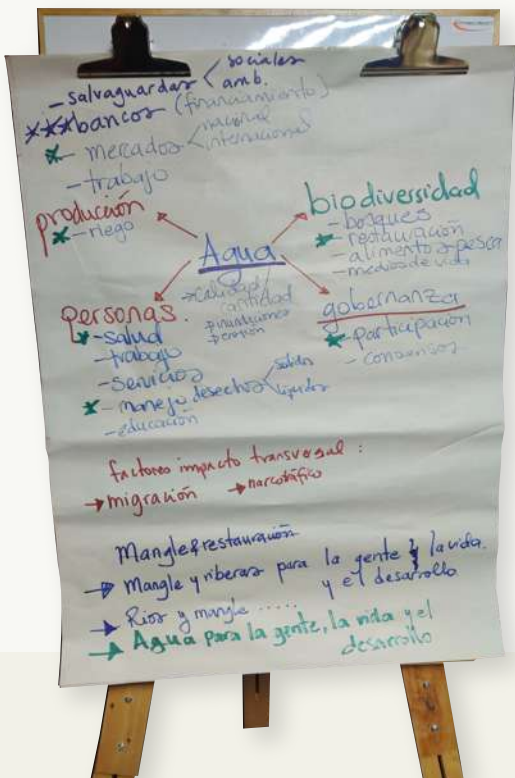 - salvaguardas < sociales
amb.
***bancos (financiamiento)
* - mercados < nacional
internacional
- trabajo
producción
* - riego
biodiversidad
- bosques
* - restauración
- alimentos pesca
- medios de vida
Agua
→ calidad/
cantidad
personas.
* - salud
- trabajo
- servicios
* - manejo desechos < solidos
liquidos
- educación
gobernanza
* - participación
- consensos
factores impacto transversal :
→ migración → narcotráfico
Mangle & restauración
→ Mangle y riberas para la gente y la vida.
y el desarrollo
→ Rios y mangle .....
→ Agua para la gente, la vida y el
desarrollo